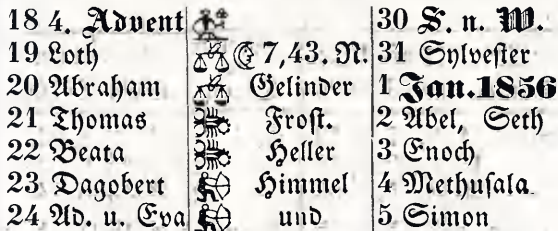 18 4. Advent 30 S. n. W.
19 Loth 7,43. N. 31 Sylvester
20 Abraham Gelinder 1 Jan. 1856
21 Thomas Frost. 2 Abel, Seth
22 Beata Heller 3 Enoch
23 Dagobert Himmel 4 Methusala
24 Ad. u. Eva und 5 Simon